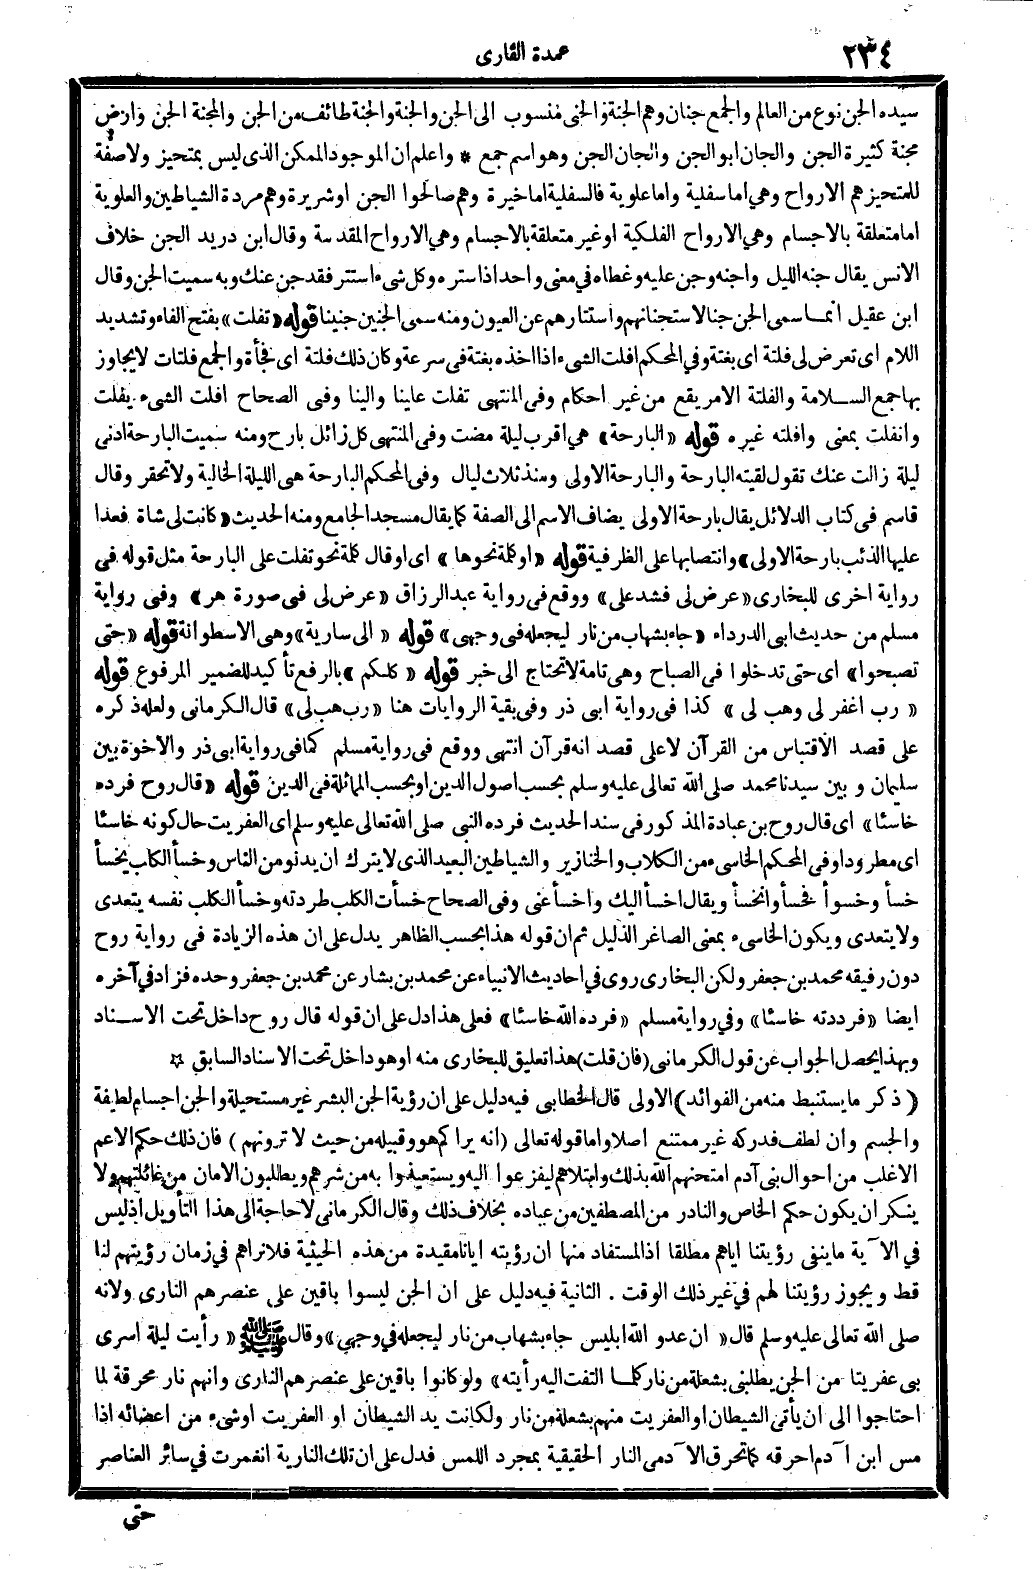 ٢٣٤
عمدة القارى
سيده الجن نوع من العالم والجمع جنان وهم الجنة والجنى منسوب الى الجن والجنة والجنة طائف من الجن والمجنة الجن وارض
مجنة كثيرة الجن والجان ابو الجن والجان الجن وهو اسم جمع * واعلم ان الموجود الممكن الذى ليس بمتحيز ولا صفة
للمتحيز هم الارواح وهي اما سفلية واما علوية فالسفلية اما خيرة وهم صالحوا الجن او شريرة وهم مردة الشياطين والعلوية
اما متعلقة بالاجسام وهي الارواح الفلكية او غير متعلقة بالاجسام وهي الارواح المقدسة وقال ابن دريد الجن خلاف
الانس يقال جنه الليل واجنه وجن عليه وغطاه في معنى واحد اذا ستره وكل شىء استتر فقد جن عنك وبه سميت الجن وقال
ابن عقيل انما سمى الجن جنا لاستجنانهم واستتارهم عن العيون ومنه سمى الجنين جنينا قوله «تفلت» بفتح الفاء وتشديد
اللام اى تعرض لى فلتة اى بغتة وفي المحكم افلت الشىء اذا اخذه بغتة فى سرعة وكان ذلك فلتة اى فجأة والجمع فلتات لا يجاوز
بها جمع السلامة والفلتة الامر يقع من غير احكام وفى المنتهى تفلت علينا والينا وفى الصحاح افلت الشىء يفلت
وانفلت بمعنى وافلته غيره قوله «البارحة» هي اقرب ليلة مضت وفى المنتهى كل زائل بارح ومنه سميت البارحة ادنى
ليلة زالت عنك تقول لقيته البارحة والبارحة الاولى ومنذ ثلاث ليال وفى المحكم البارحة هى الليلة الخالية ولا تحقر وقال
قاسم فى كتاب الدلائل يقال بارحة الاولى يضاف الاسم الى الصفة كما يقال مسجد الجامع ومنه الحديث «كانت لى شاة فعدا
عليها الذئب بارحة الاولى» وانتصابها على الظرفية قوله «او كلمة نحوها» اى او قال كلمة نحو تفلت على البارحة مثل قوله فى
رواية اخرى للبخارى «عرض لى فشد على» ووقع فى رواية عبد الرزاق «عرض لى فى صورة هر» وفى رواية
مسلم من حديث ابى الدرداء «جاء بشهاب من نار ليجعله فى وجهى» قوله «الى سارية» وهى الاسطوانة قوله «حتى
تصبحوا» اى حتى تدخلوا فى الصباح وهى تامة لا تحتاج الى خبر قوله «كلكم» بالرفع تأكيد للضمير المرفوع قوله
«رب اغفر لى وهب لى» كذا فى رواية ابى ذر وفى بقية الروايات هنا «رب هب لى» قال الكرمانى ولعله ذكره
على قصد الاقتباس من القرآن لا على قصد انه قرآن انتهى ووقع فى رواية مسلم كما فى رواية ابى ذر والاخوة بين
سليمان وبين سيدنا محمد صلى الله تعالى عليه وسلم بحسب اصول الدين او بحسب المماثلة فى الدين قوله «قال روح فرده
خاسئا» اى قال روح بن عبادة المذكور فى سند الحديث فرده النبى صلى الله تعالى عليه وسلم اى العفريت حال كونه خاسئا
اى مطرودا وفى المحكم الخاسىء من الكلاب والخنازير والشياطين البعيد الذى لا يترك ان يدنو من الناس وخسأ الكلب يخسأ
خسأ وخسوأ فخسأ وانخسأ ويقال اخسأ اليك واخسأ عنى وفى الصحاح خسأت الكلب طردته وخسأ الكلب نفسه يتعدى
ولا يتعدى ويكون الخاسىء بمعنى الصاغر الذليل ثم ان قوله هذا بحسب الظاهر يدل على ان هذه الزيادة فى رواية روح
دون رفيقه محمد بن جعفر ولكن البخارى روى فى احاديث الانبياء عن محمد بن بشار عن محمد بن جعفر وحده فزاد في آخره
ايضا «فرددته خاسئا» وفي رواية مسلم «فرده الله خاسئا» فعلى هذا دل على ان قوله قال روح داخل تحت الاسناد
وبهذا يحصل الجواب عن قول الكرمانى (فان قلت) هذا تعليق للبخارى منه او هو داخل تحت الاسناد السابق ☆
(ذكر ما يستنبط منه من الفوائد) الاولى قال الخطابى فيه دليل على ان رؤية الجن البشر غير مستحيلة والجن اجسام لطيفة
والجسم وان لطف فدركه غير ممتنع اصلا واما قوله تعالى (انه يراكم هو وقبيله من حيث لا ترونهم) فان ذلك حكم الاعم
الاغلب من احوال بنى آدم امتحنهم الله بذلك وابتلاهم ليفزعوا اليه ويستعيذوا به من شرهم ويطلبون الامان من غائلتهم ولا
ينكر ان يكون حكم الخاص والنادر من المصطفين من عباده بخلاف ذلك وقال الكرمانى لا حاجة الى هذا التأويل اذ ليس
في الآية ما ينفى رؤيتنا اياهم مطلقا اذ المستفاد منها ان رؤيته ايانا مقيدة من هذه الحيثية فلا نراهم في زمان رؤيتهم لنا
قط ويجوز رؤيتنا لهم في غير ذلك الوقت . الثانية فيه دليل على ان الجن ليسوا باقين على عنصرهم النارى ولانه
صلى الله تعالى عليه وسلم قال «ان عدو الله ابليس جاء بشهاب من نار ليجعله في وجهي» وقال ﷺ «رأيت ليلة اسرى
بى عفريتا من الجن يطلبنى بشعلة من نار كلما التفت اليه رأيته» ولو كانوا باقين على عنصرهم النارى وانهم نار محرقة لما
احتاجوا الى ان يأتى الشيطان او العفريت منهم بشعلة من نار ولكانت يد الشيطان او العفريت او شىء من اعضائه اذا
مس ابن آدم احرقه كما تحرق الآدمى النار الحقيقية بمجرد اللمس فدل على ان تلك النارية انغمرت في سائر العناصر
حتى